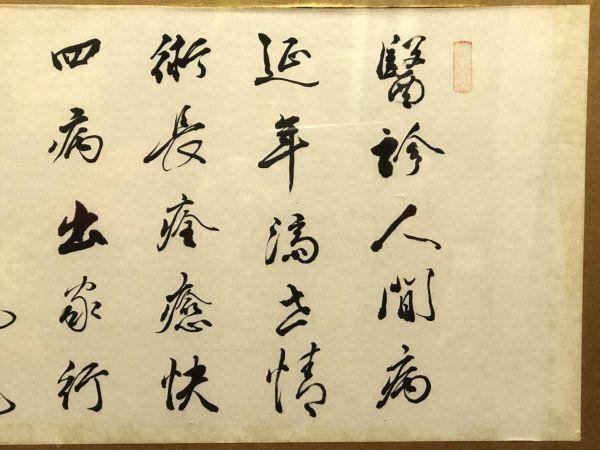 醫診人間病
延年濟世情
術長痊癒快
四病出家行